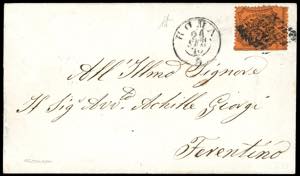 ROMA
All' Illmo Signore
Il Sig Avv. Achille Giorgi
Ferentino